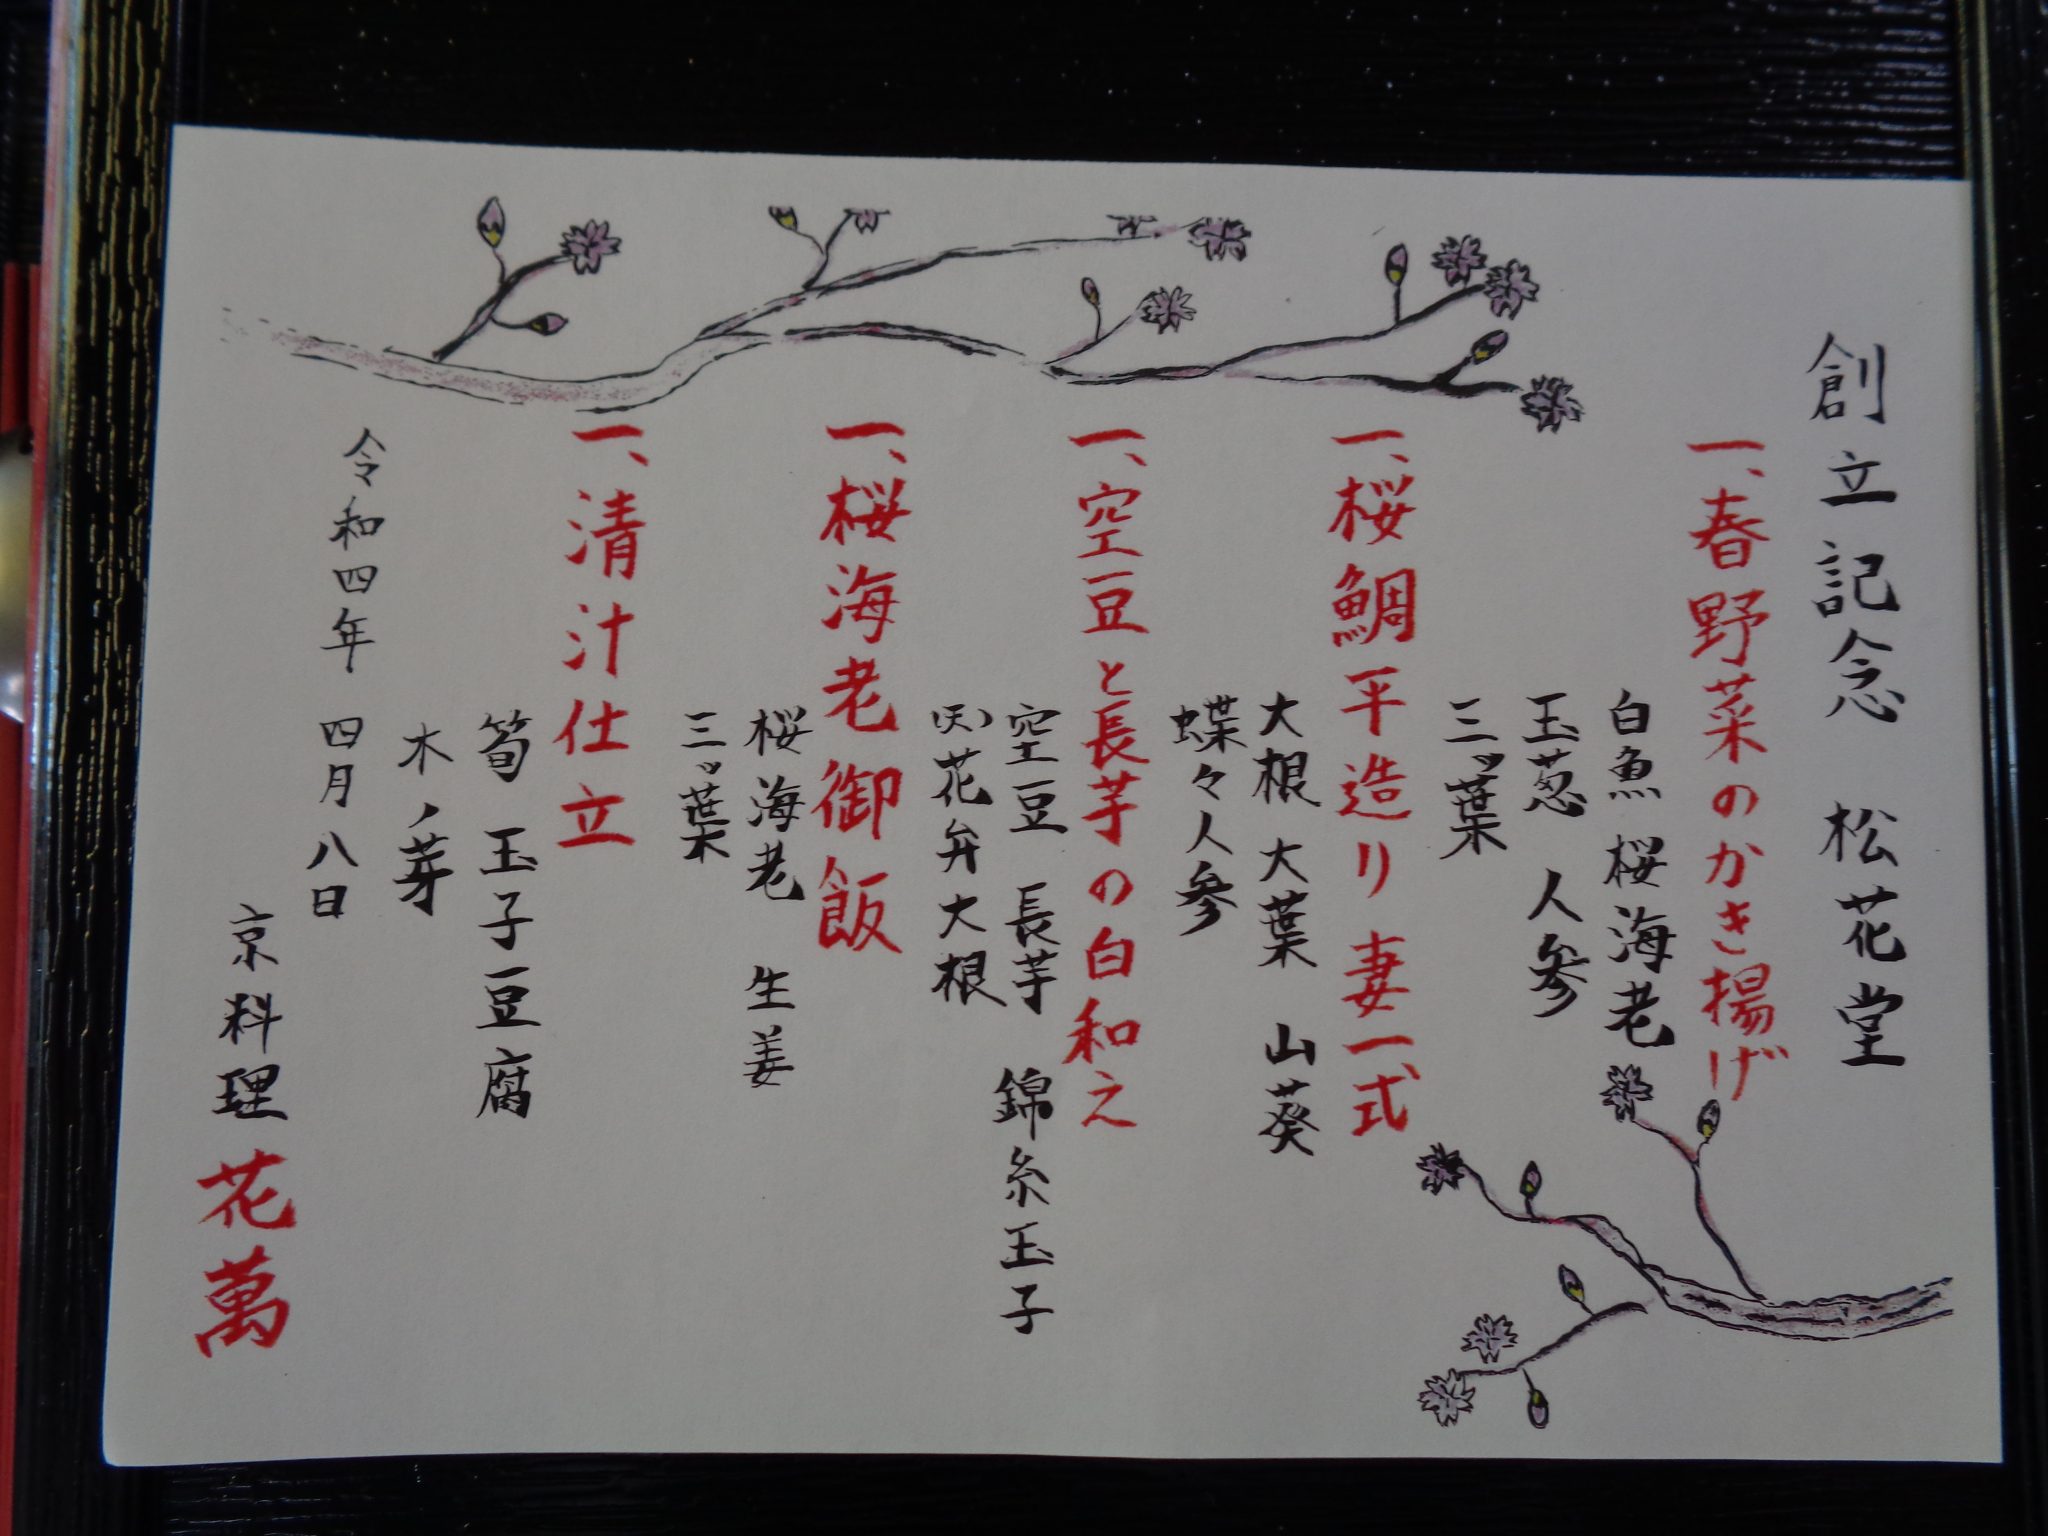 創立記念 松花堂
一、春野菜のかき揚げ
白魚 桜海老
玉葱 人参
三ッ葉
一、桜鯛平造り 妻一式
大根 大葉 山葵
蝶々人参
一、空豆と長芋の白和え
空豆 長芋 錦糸玉子
花弁大根
一、桜海老御飯
桜海老 生姜
三ッ葉
一、清汁仕立
筍 玉子豆腐
木ノ芽
令和四年 四月八日
京料理 花萬